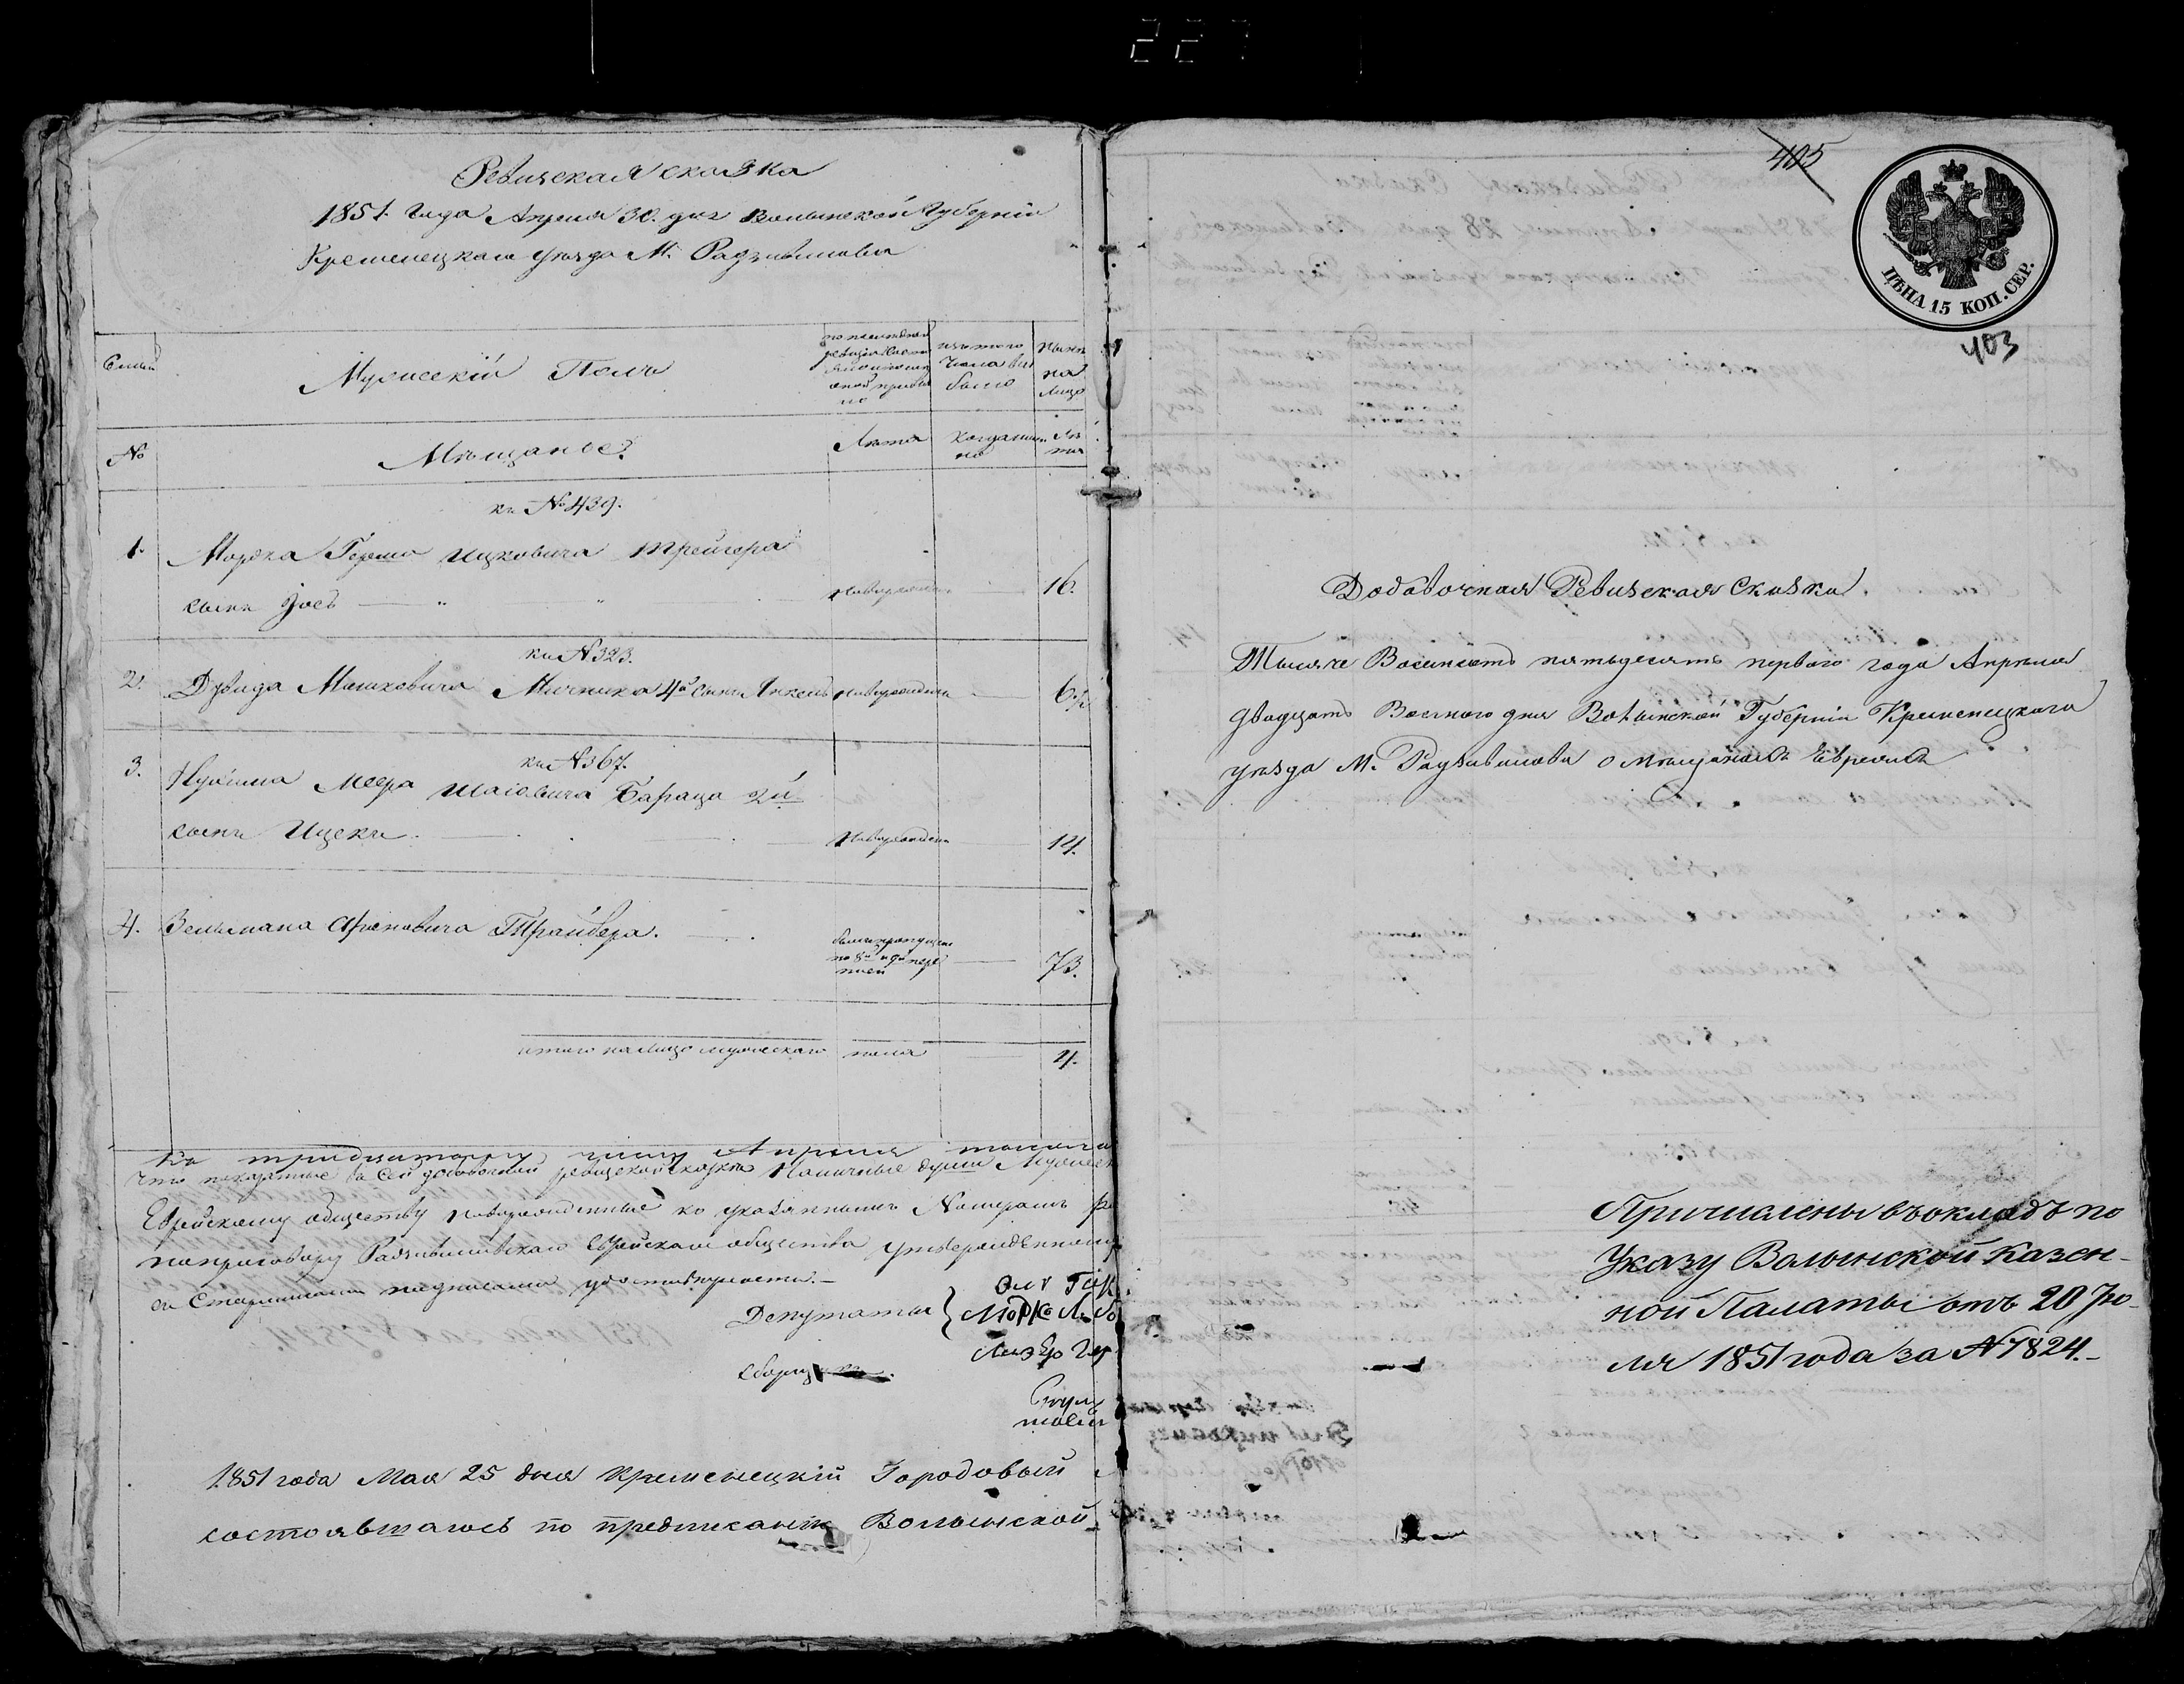 227
Ревизская сказка
1851. Года Апреля 30. дня Волынской Губерніи
Кременецкаго уезда М. Радзивилова
Семьи
Мужескій Полъ
по последней ревизіи состояло
изъ того числа выбыло
ныне на лицо
№
Мещанъе
Лета
когда именно
Лета
къ №439.
1. Мордка Герша Ицковича Трейгера
сынъ Іосъ новорожденъ 16.
къ №323.
2. Дувида Мошковича Мичника 4й сынъ Янкель новорожденъ 6½
къ №367.
3. Нухима Меера Шаіовича Бараца 2й
сынъ Ицекъ новорожденъ 14.
4. Зельмана Ароновича Трайбера.
былъ пропущенъ по 8й и 9й переписи
73.
итого на лицо мужескаго пола 4.
Къ тридцатому числу Апреля тысяча
Что показанные въ сей добавочной ревизской сказке Наличные души Мужеск
Еврейскому обществу новорожденные ко указаннымъ Номерамъ
по приговору Радзивиловскаго Еврейскаго общества утвержденному
подписами удостоверяется.
Депутаты
Морко
Лизер
Сборщ
1851 года Мая 25 дня Кременецкій Городовый
состоявшагось по предписанію Волынской
405
ЦѢНА 15 КОП. СЕР.
403
Добавочная Ревизская Сказка
Тысяча Восемьсотъ пятьдесятъ перваго года Апреля
двадцать Восмого дня Волынской Губерніи Кременецкаго
уезда М. Радзивилова о мещанахъ Евреяхъ
Причислены въ окладъ по
Указу Волынской Казен-
ной Палаты отъ 20 Ію-
ля 1851 года за №7824.-